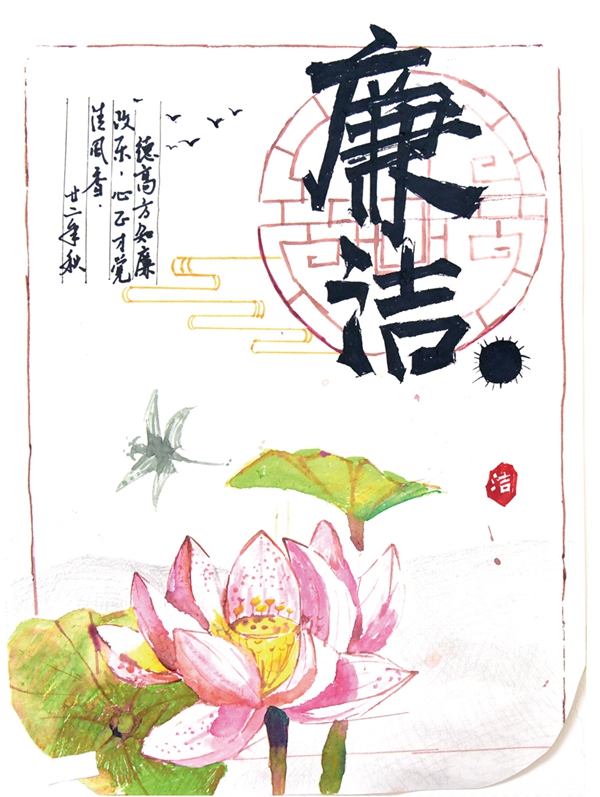 廉
洁
德高方知廉
政乐，心正才觉
清风香．
廿二年秋
洁